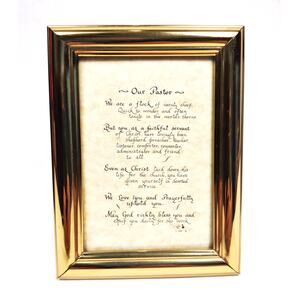 ~ Our Pastor ~
We are a flock of needy sheep,
Quick to wander and often
caught in the world's thorns
But you as a faithful servant
of Christ have lovingly been
shepherd, preacher, teacher,
listener, comforter, counselor,
administrator and friend
to all.
Even as Christ laid down his
life for the church, you have
given yourself in devoted
service.
We Love you and Prayerfully
uphold you.
May God richly bless you and
equip you daily for his work